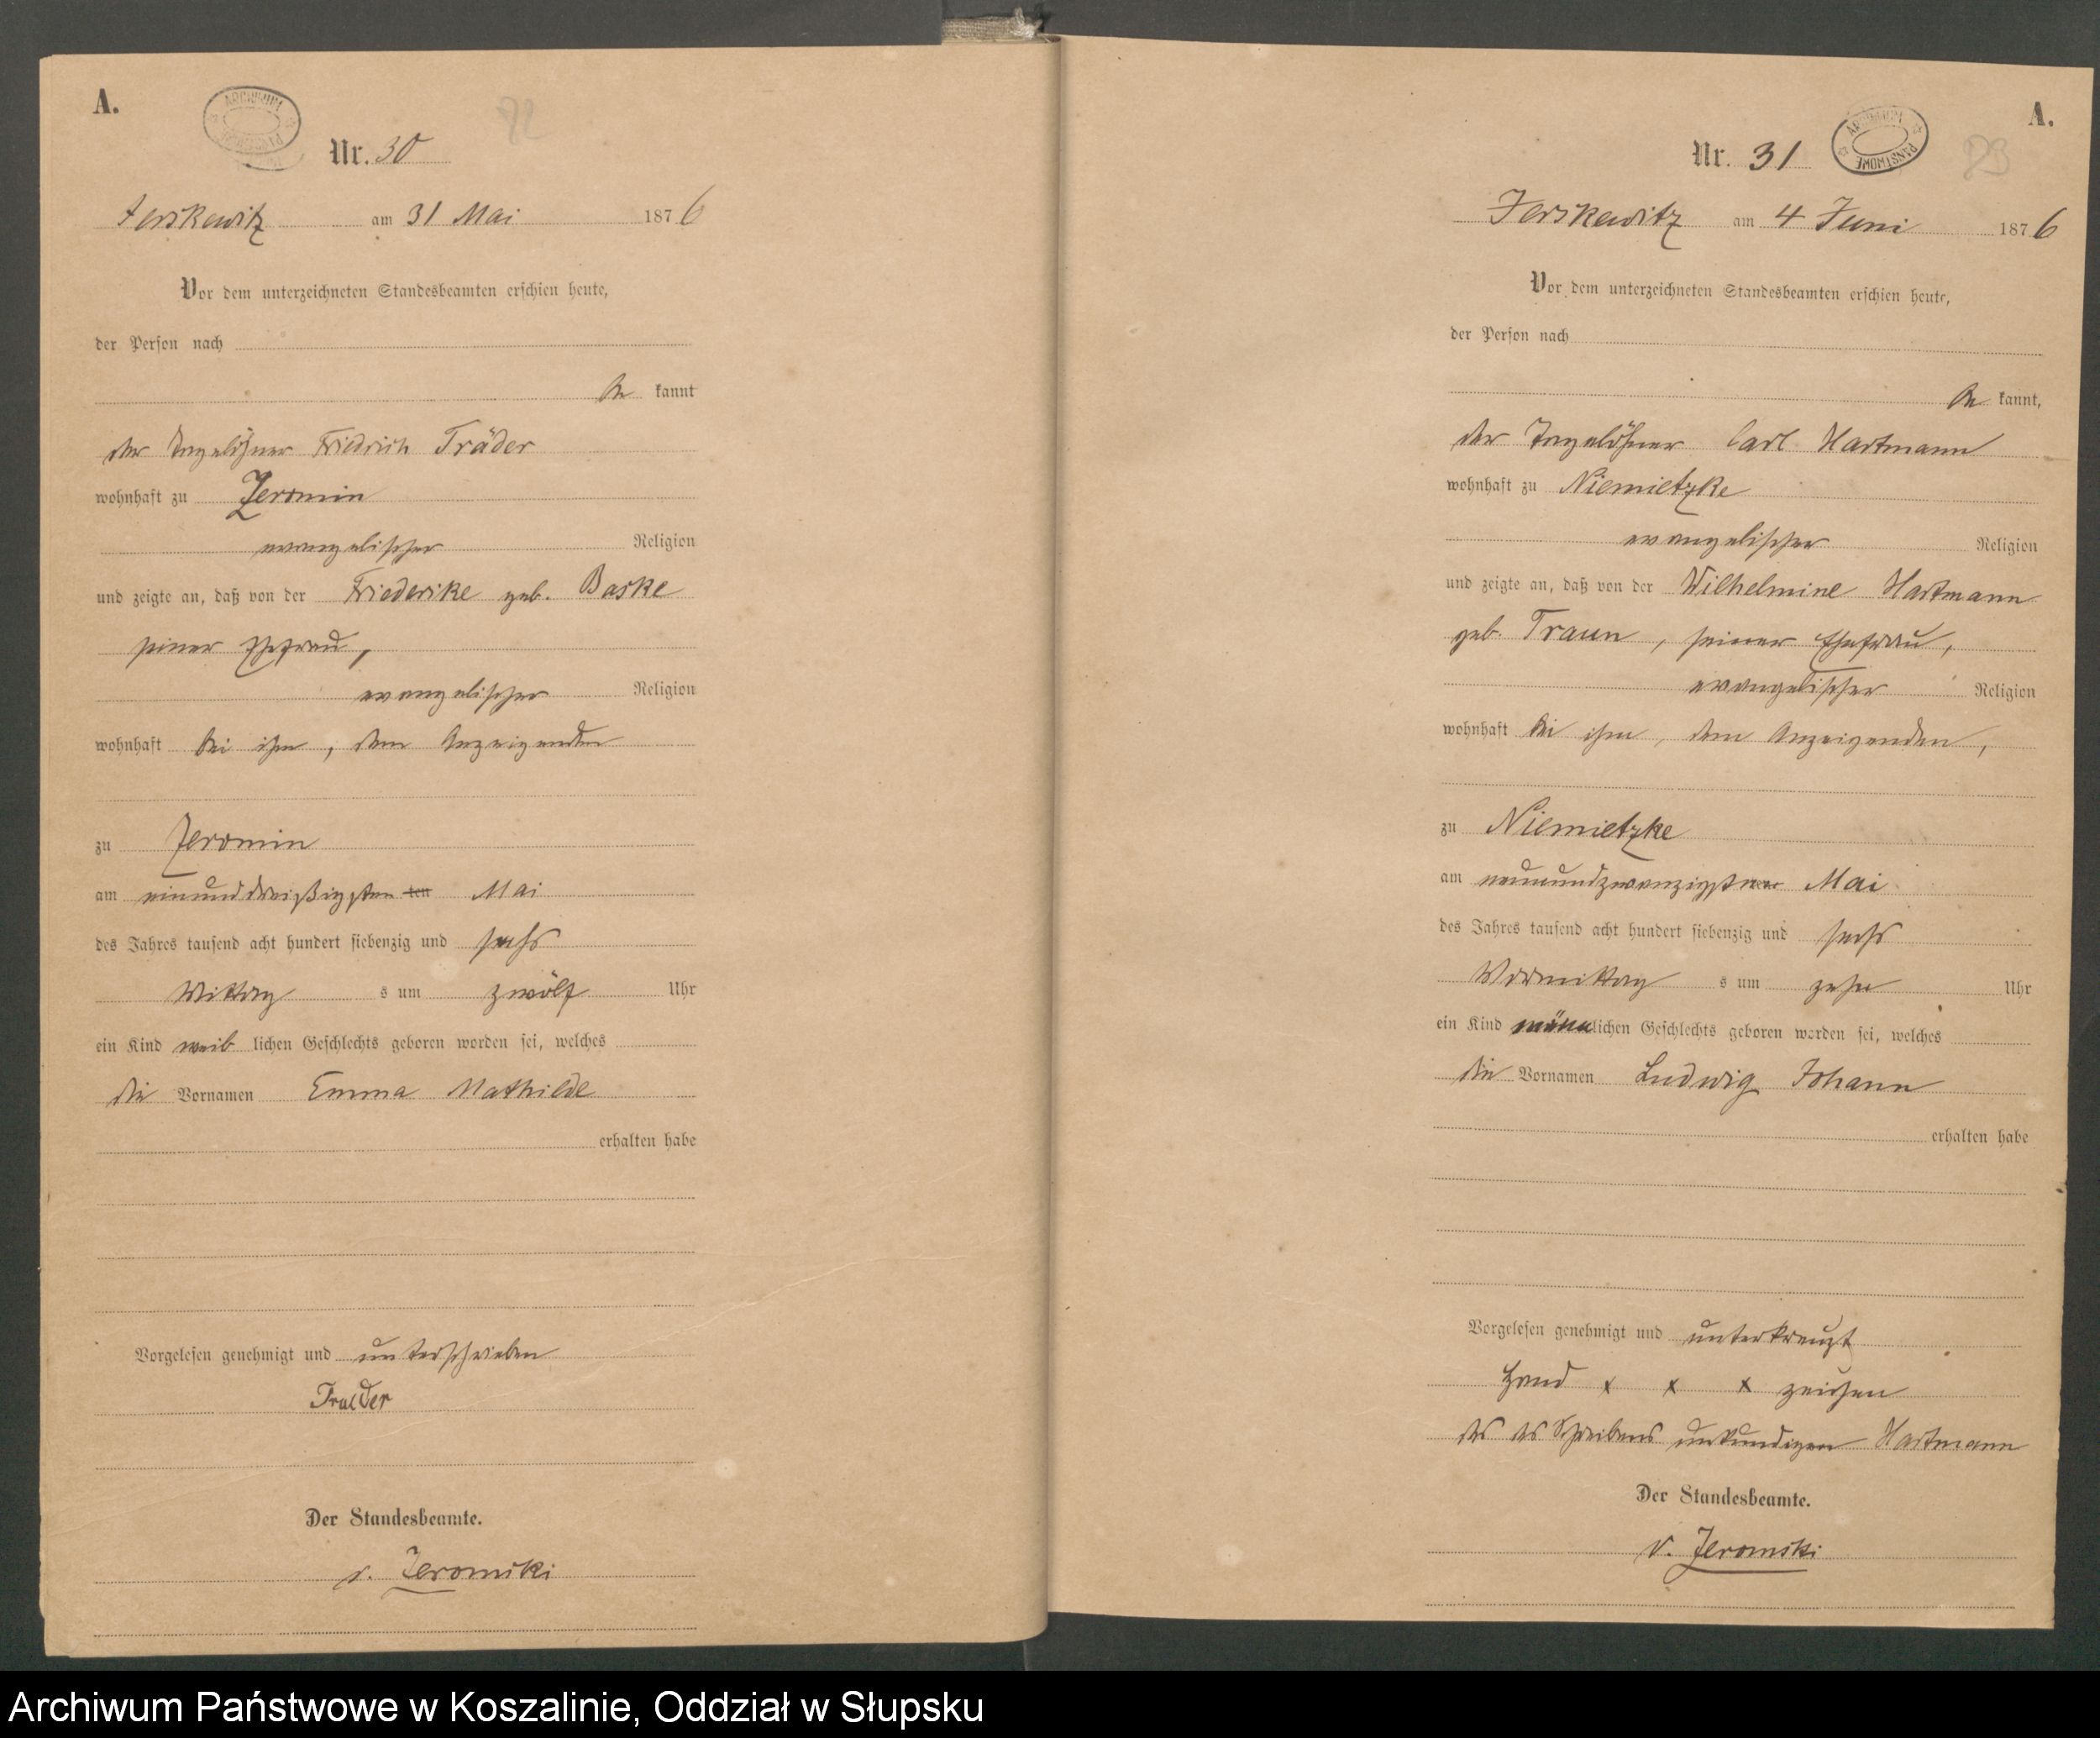 A.
ARCHIWUM PAŃSTWOWE
Nr. 30
Jerskewitz am 31 Mai 1876
Vor dem unterzeichneten Standesbeamten erschien heute,
der Person nach
be kannt
der Tagelöhner Friedrich Träder
wohnhaft zu Jeromin
evangelischer Religion
und zeigte an, daß von der Friederike geb. Baske
seiner Ehefrau,
evangelischer Religion
wohnhaft bei ihm, dem Anzeigenden
zu Jeromin
am einunddreißigsten ten Mai
des Jahres tausend acht hundert siebenzig und sechs
Mittag s um zwölf Uhr
ein Kind weib lichen Geschlechts geboren worden sei, welches
die Vornamen Emma Mathilde
erhalten habe
Vorgelesen genehmigt und unterschrieben
Der Standesbeamte.
v. Jeromski
A.
ARCHIWUM PAŃSTWOWE
Nr. 31
Jerskewitz am 4 Juni 1876
Vor dem unterzeichneten Standesbeamten erschien heute,
der Person nach
be kannt,
der Tagelöhner Carl Hartmann
wohnhaft zu Niemietzke
evangelischer Religion
und zeigte an, daß von der Wilhelmine Hartmann
geb. Traun, seiner Ehefrau,
evangelischer Religion
wohnhaft bei ihm, dem Anzeigenden,
zu Niemietzke
am neunundzwanzigsten Mai
des Jahres tausend acht hundert siebenzig und sechs
Vormittag s um zehn Uhr
ein Kind männlichen Geschlechts geboren worden sei, welches
die Vornamen Ludwig Johann
erhalten habe
Vorgelesen genehmigt und unterkreuzt
Hand x x x zeichen
des des Schreibens unkundigen Hartmann
Der Standesbeamte.
v. Jeromski
Archiwum Państwowe w Koszalinie, Oddział w Słupsku